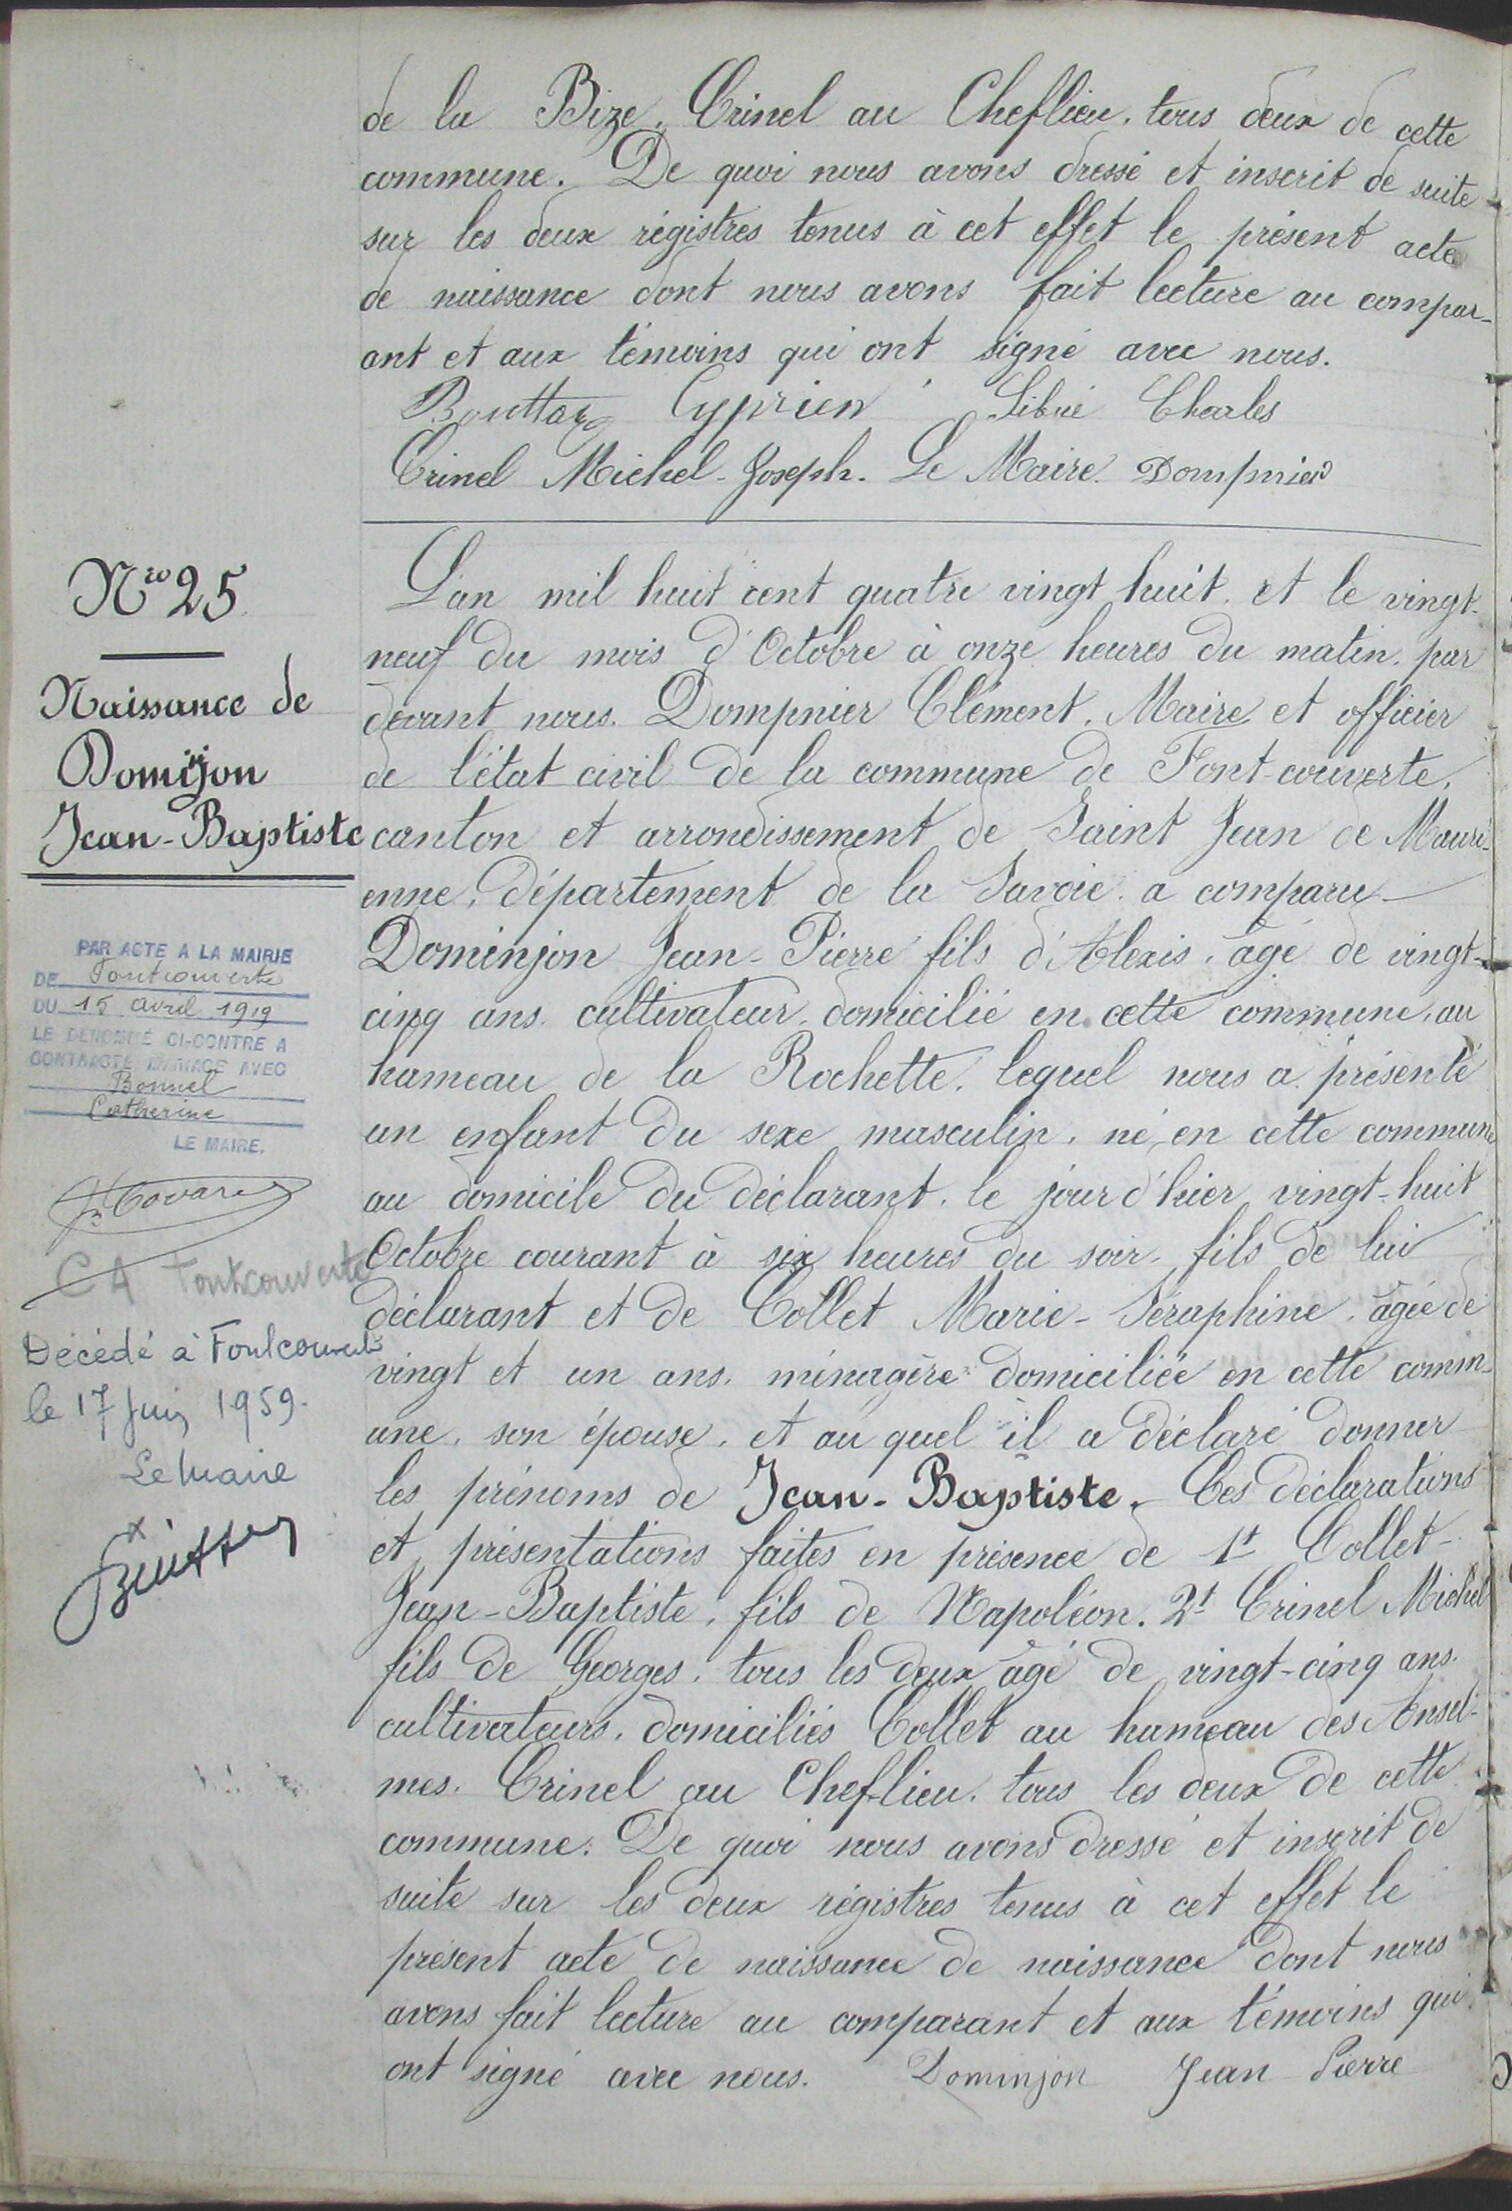 de la Bize. Crinel au Cheflieu. tous deux de cette
commune. De quoi nous avons dressé et inscrit de suite
sur les deux régistres tenus à cet effet le présent acte
de naissance dont nous avons fait lecture au compar-
ant et aux témoins qui ont signé avec nous.
Bouttaz Cyprien Sibué Charles
Crinel Michel-Joseph. Le Maire. Dompnier
Nro 25
Naissance de
Domijon
Jean-Baptiste
PAR ACTE A LA MAIRIE
DE Fontcouverte
DU 15 avril 1919
LE DENOMMÉ CI-CONTRE A
CONTRACTÉ MARIAGE AVEC
Bonnel
Catherine
LE MAIRE.
CA Fontcouverte
Décédé à Fontcouverte
le 17 Juin 1959.
Le Maire
L'an mil huit cent quatre vingt huit. et le vingt-
neuf du mois d'Octobre à onze heures du matin. par
devant nous. Dompnier Clément. Maire et officier
de l'état civil de la commune de Font-couverte.
canton et arrondissement de Saint Jean de Mauri-
enne, département de la Savoie. a comparu
Dominjon Jean-Pierre fils d'Alexis. âgé de vingt-
cinq ans. cultivateur. domicilié en cette commune, au
hameau de la Rochette. lequel nous a présenté
un enfant du sexe masculin. né en cette commune
au domicile du déclarant. le jour d'hier vingt-huit
Octobre courant à six heures du soir. fils de lui
déclarant et de Collet Marie-Séraphine. âgée de
vingt et un ans. ménagère domiciliée en cette comm-
une. son épouse. et au quel il a déclaré donner
les prénoms de Jean-Baptiste. Ces déclarations
et présentations faites en présence de 1t Collet-
Jean-Baptiste, fils de Napoléon. 2t Crinel Michel
fils de Georges. tous les deux âgé de vingt-cinq ans.
cultivateurs. domiciliés Collet au hameau des Ansel-
mes. Crinel au Chef-lieu. tous les deux de cette
commune. De quoi nous avons dressé et inscrit de
suite sur les deux régistres tenus à cet effet le
présent acte de naissance de naissance dont nous
avons fait lecture au comparant et aux témoins qui
ont signé avec nous. Dominjon Jean Pierre